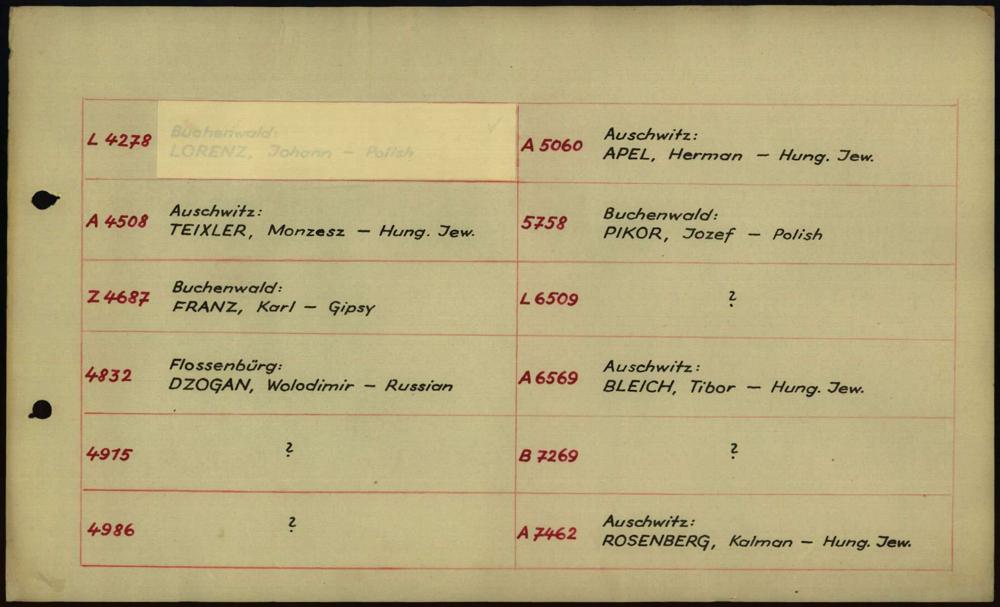 L 4278 Buchenwald:
LORENZ, Johann – Polish
A 4508 Auschwitz:
TEIXLER, Monzesz – Hung. Jew.
Z 4687 Buchenwald:
FRANZ, Karl – Gipsy
4832 Flossenbürg:
DZOGAN, Wolodimir – Russian
4975 ?
4986 ?
A 5060 Auschwitz:
APEL, Herman – Hung. Jew.
5758 Buchenwald:
PIKOR, Jozef – Polish
L 6509 ?
A 6569 Auschwitz:
BLEICH, Tibor – Hung. Jew.
B 7269 ?
A 7462 Auschwitz:
ROSENBERG, Kalman – Hung. Jew.